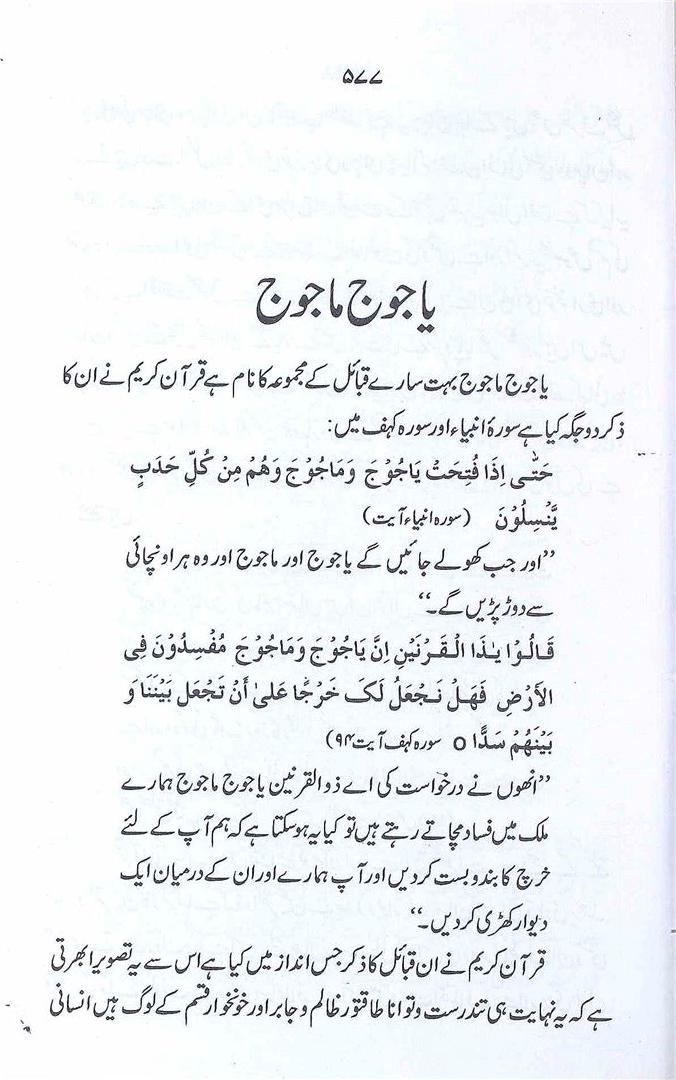 ۵۷۷
یاجوج ماجوج
یاجوج ماجوج بہت سارے قبائل کے مجموعہ کا نام ہے قرآن کریم نے ان کا
ذکر دو جگہ کیا ہے سورۂ انبیاء اور سورہ کہف میں:
حَتّٰى اِذَا فُتِحَتْ يَاجُوْجَ وَمَاجُوْجَ وَهُمْ مِنْ كُلِّ حَدَبٍ
يَّنْسِلُوْنَ (سورہ انبیاء آیت)
”اور جب کھولے جائیں گے یاجوج اور ماجوج اور وہ ہر اونچائی
سے دوڑ پڑیں گے۔“
قَالُوْا يٰذَا الْقَرْنَيْنِ اِنَّ يَاجُوْجَ وَمَاجُوْجَ مُفْسِدُوْنَ فِى
الأَرْضِ فَهَلْ نَجْعَلُ لَكَ خَرْجًا عَلىٰ أَنْ تَجْعَل بَيْنَنَا وَ
بَيْنَهُمْ سَدًّا o سورہ کہف آیت ۹۴)
”انھوں نے درخواست کی اے ذوالقرنین یاجوج ماجوج ہمارے
ملک میں فساد مچاتے رہتے ہیں تو کیا یہ ہوسکتا ہے کہ ہم آپ کے لئے
خرچ کا بندوبست کردیں اور آپ ہمارے اور ان کے درمیان ایک
دیوار کھڑی کردیں۔“
قرآن کریم نے ان قبائل کا ذکر جس انداز میں کیا ہے اس سے یہ تصویر ابھرتی
ہے کہ یہ نہایت ہی تندرست و توانا طاقتور ظالم و جابر اور خونخوار قسم کے لوگ ہیں انسانی